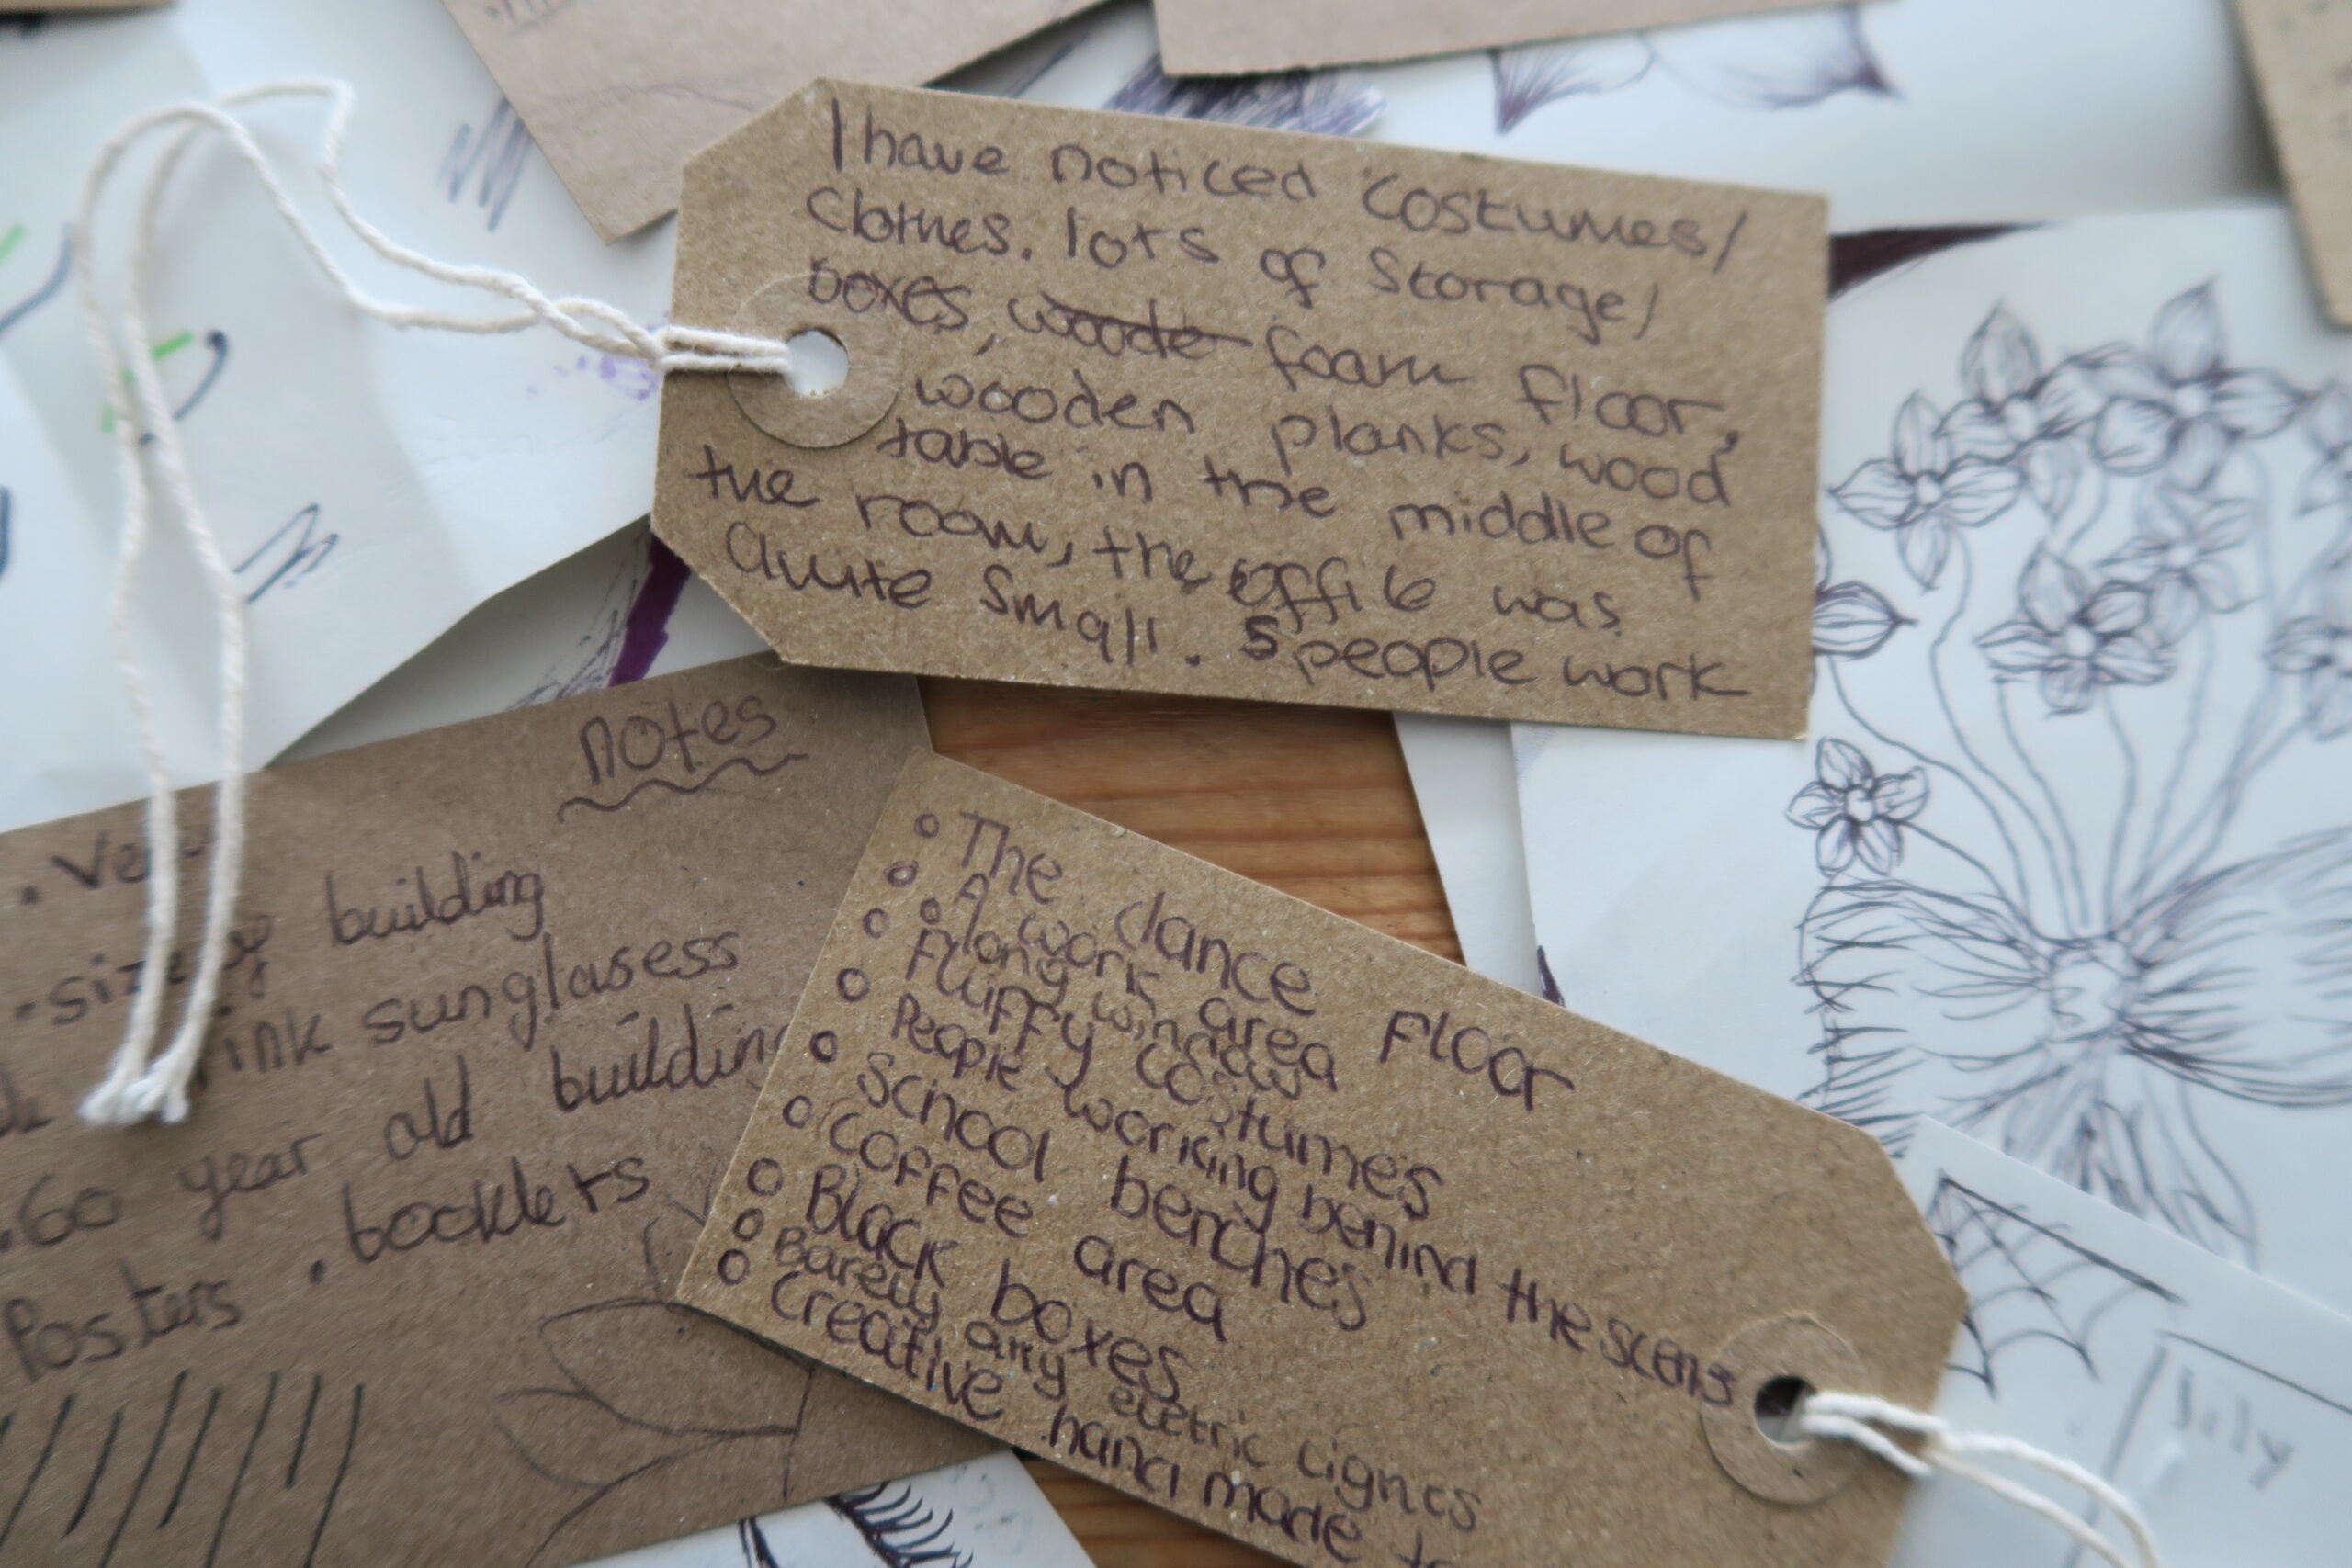 I have noticed costumes/
Clothes. lots of Storage/
boxes, woode foam floor,
wooden planks, wood
table in the middle of
the room, the office was
quite small. 5 people work
notes
building
sunglasess
.60 year old building
Posters . booklets
The dance Floor
A work area
long window
Fluffy costumes
People working behind the scens
School benches
Coffee area
Black boxes
Barely any eletric lights
Creative hand made
lily